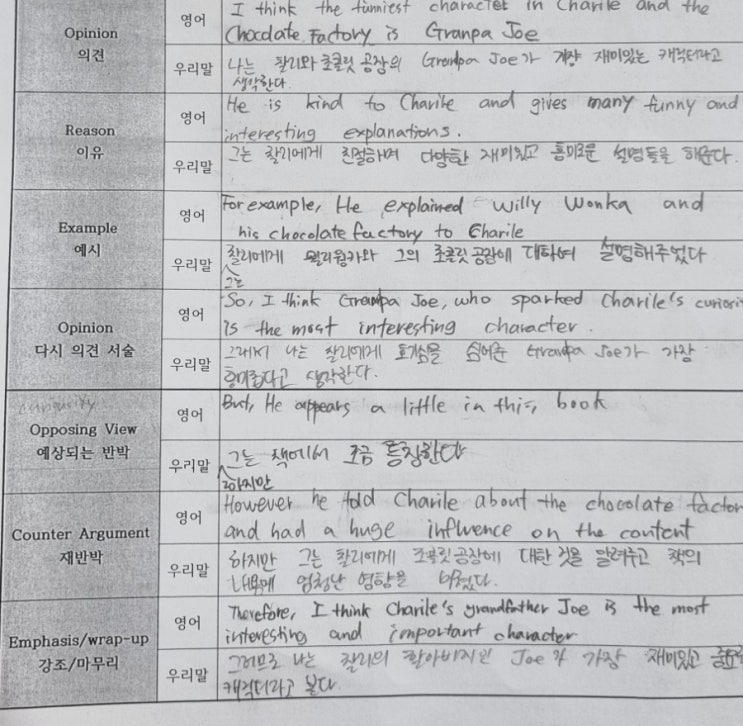 I think the funniest character in Charile and the
Opinion
영어
Chocolate Factory is Granpa Joe
의견
우리말
나는 찰리와 초콜릿 공장의 Grandpa Joe가 가장 재미있는 캐릭터라고
생각한다.
Reason
영어
He is kind to Charile and gives many funny and
interesting explanations.
이유
우리말
그는 찰리에게 친절하며 다양한 재미있고 흥미로운 설명들을 해준다.
Example
영어
For example, He explained Willy Wonka and
his chocolate factory to Charile
예시
우리말
찰리에게 윌리웡카와 그의 초콜릿 공장에 대하여 설명해주었다
그는
Opinion
영어
So, I think Grandpa Joe, who sparked Charile's
is the most interesting character.
다시 의견 서술
우리말
그래서 나는 찰리에게 호기심을 심어준 Grandpa Joe가 가장
흥미롭다고 생각한다.
curiosity
Opposing View
영어
But, He appears a little in this book
예상되는 반박
우리말
그는 책에서 조금 등장한다
하지만
Counter Argument
영어
However he told Charile about the chocolate
and had a huge influence on the content
재반박
우리말
하지만 그는 찰리에게 초콜릿 공장에 대한 것을 알려주고 책의
내용에 엄청난 영향을
Emphasis/wrap-up
영어
Therefore, I think Charile's grandfather Joe is the most
interesting and important character
강조/마무리
우리말
그러므로 나는 찰리의 할아버지인 Joe가 가장 재미있고
캐릭터라고 본다.